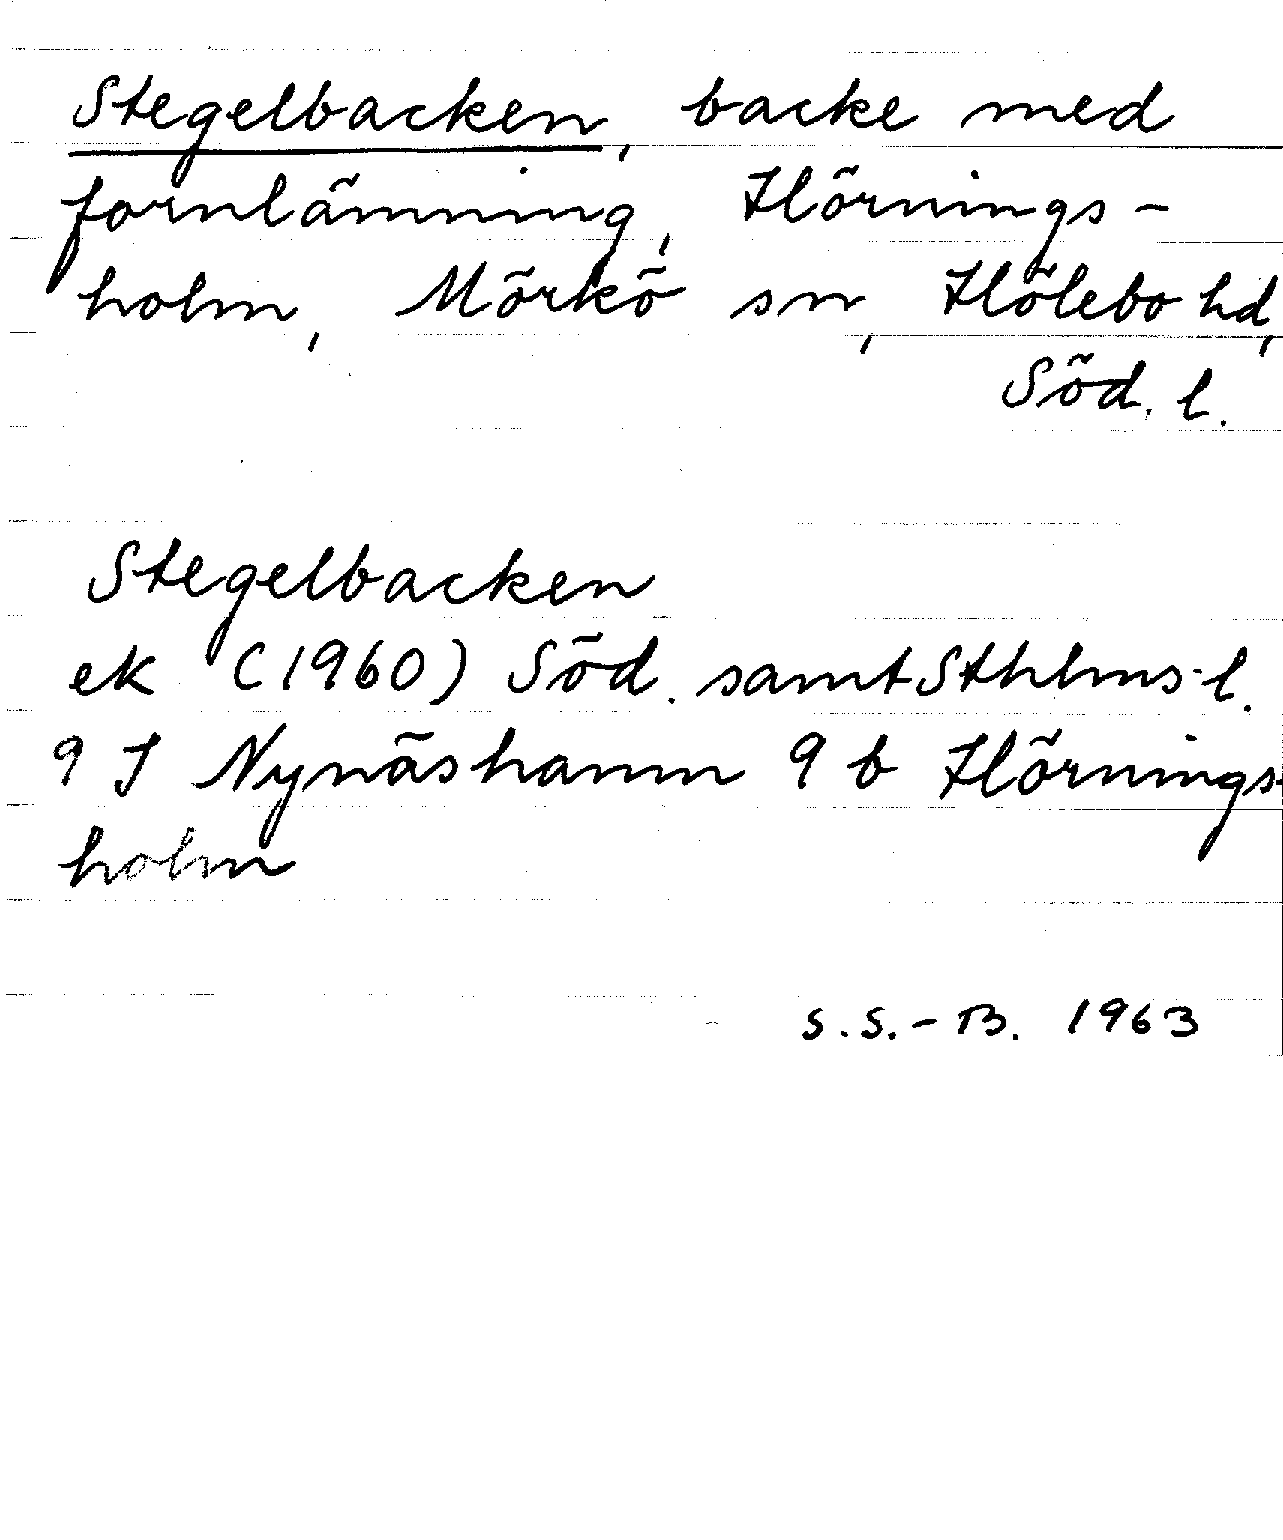 Stegelbacken, backe med
fornlämning, Hörnings-
holm, Mörkö sn, Hölebo hd,
Söd. l.
Stegelbacken
ek (1960) Söd. samt Sthlms l.
9 I Nynäshamn 9 b Hörnings-
holm
S.S.-B. 1963